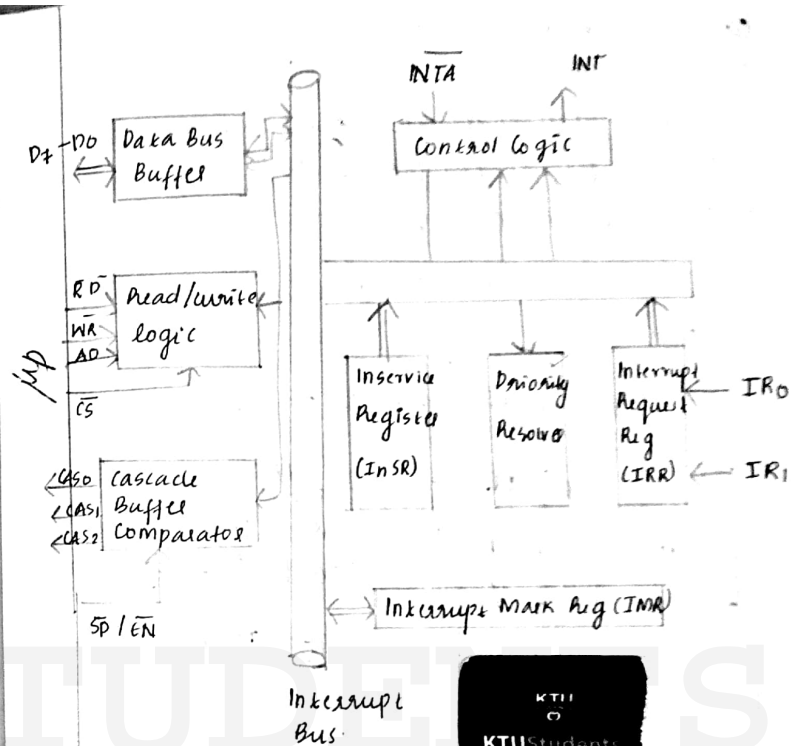 INTA
INT
D7-D0
Data Bus
Buffer
Control Logic
RD
WR
A0
CS
Read/write
logic
μp
Inservice
Register
(InSR)
Priority
Resolver
Interrupt
Request
Reg
(IRR)
IR0
IR1
CAS0
CAS1
CAS2
Cascade
Buffer
Comparator
SP / EN
Interrupt Mask Reg (IMR)
Interrupt
Bus
KTU
KTUStudents
TUDENTS